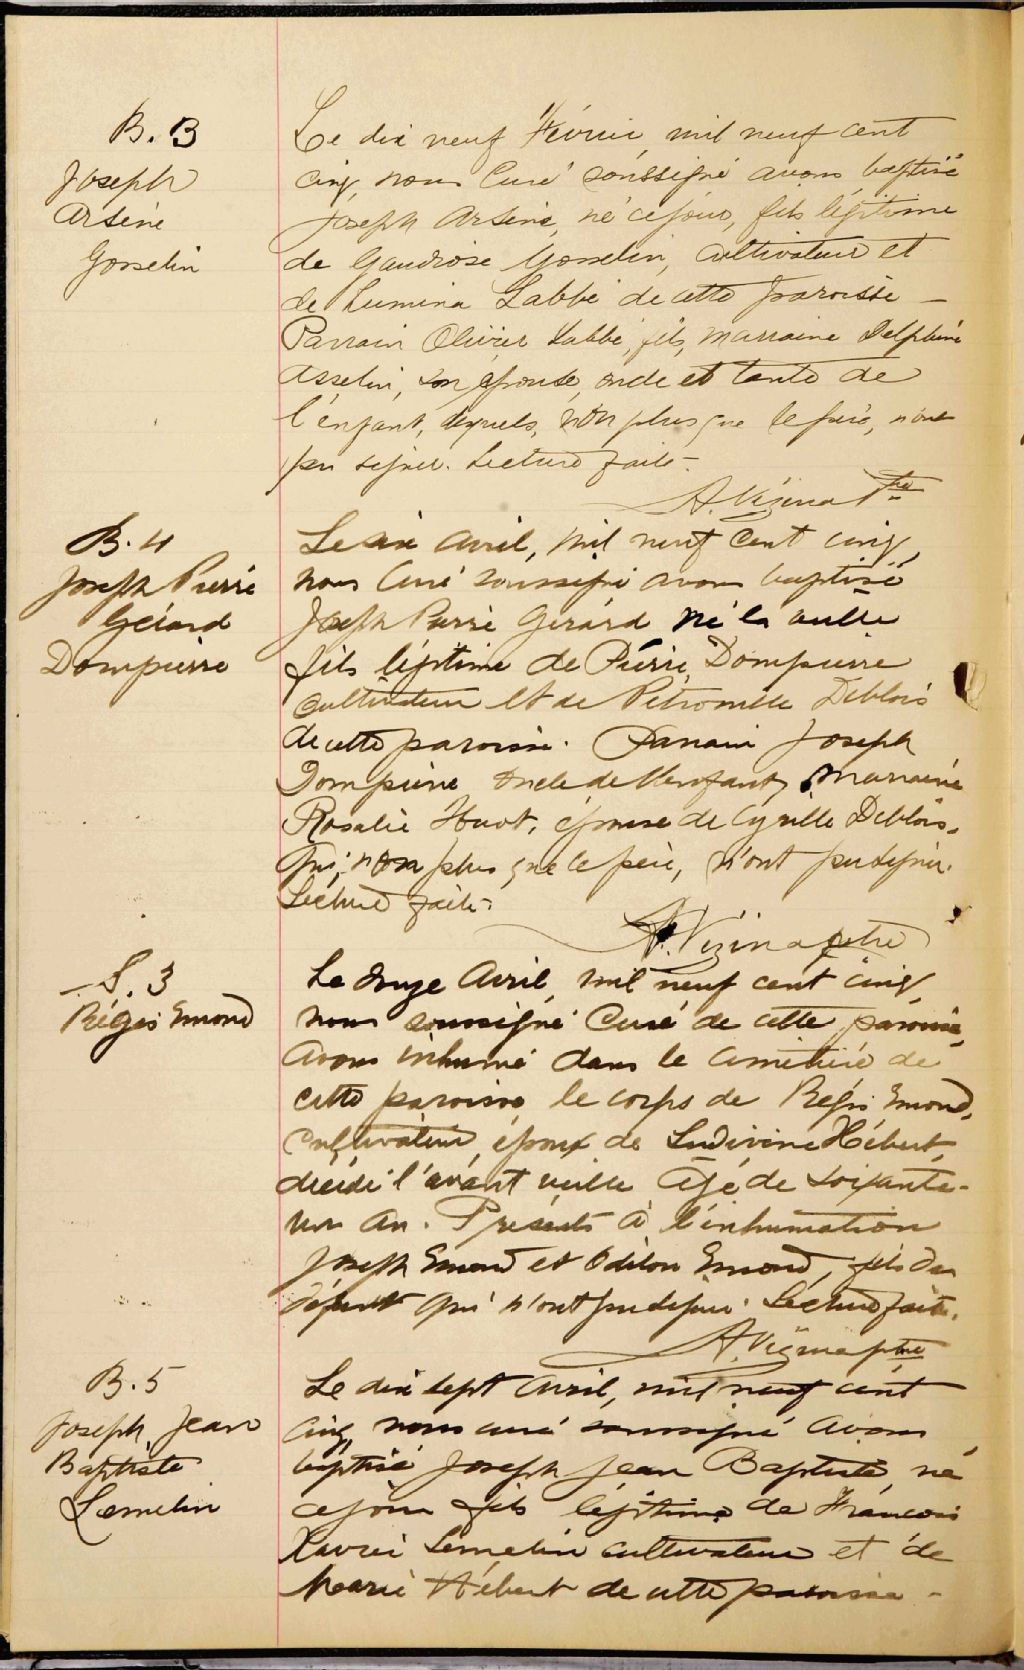 B. 3
Joseph
Arsène
Gosselin
Le dix neuf Février, mil neuf cent
cinq, nous Curé soussigné avons baptisé
Joseph Arsène, né ce jour, fils légitime
de Gaudiose Gosselin, cultivateur et
de Lumina Labbé de cette paroisse –
Parrain Olivier Labbé, fils, marraine Delphine
Asselin, son épouse, oncle et tante de
l'enfant, lesquels, non plus que le père, n'ont
pu signer. Lecture faite –
A. Vézina Ptre
B. 4
Joseph Pierre
Gérard
Dompierre
Le six Avril, mil neuf cent cinq,
nous Curé soussigné avons baptisé
Joseph Pierre Gérard né la veille
fils légitime de Pierre Dompierre
cultivateur et de Pétronille Deblois
de cette paroisse. Parrain Joseph
Dompierre oncle de l'enfant, marraine
Rosalie Huot, épouse de Cyrille Deblois,
qui, non plus que le père, n'ont pu signer.
Lecture faite –
A. Vézina ptre
S. 3
Régis Emond
Le douze Avril, mil neuf cent cinq,
nous soussigné Curé de cette paroisse,
avons inhumé dans le cimetière de
cette paroisse le corps de Régis Emond,
cultivateur, époux de Ludivine Hébert,
décédé l'avant veille âgé de soixante-
un an. Présents à l'inhumation
Joseph Emond et Odilon Emond, fils du
défunt qui n'ont pu signer. Lecture faite.
A. Vézina ptre
B. 5
Joseph Jean
Baptiste
Lemelin
Le dix sept Avril, mil neuf cent
cinq, nous curé soussigné avons
baptisé Joseph Jean Baptiste, né
ce jour fils légitime de François
Xavier Lemelin cultivateur et de
Marie Hébert de cette paroisse –